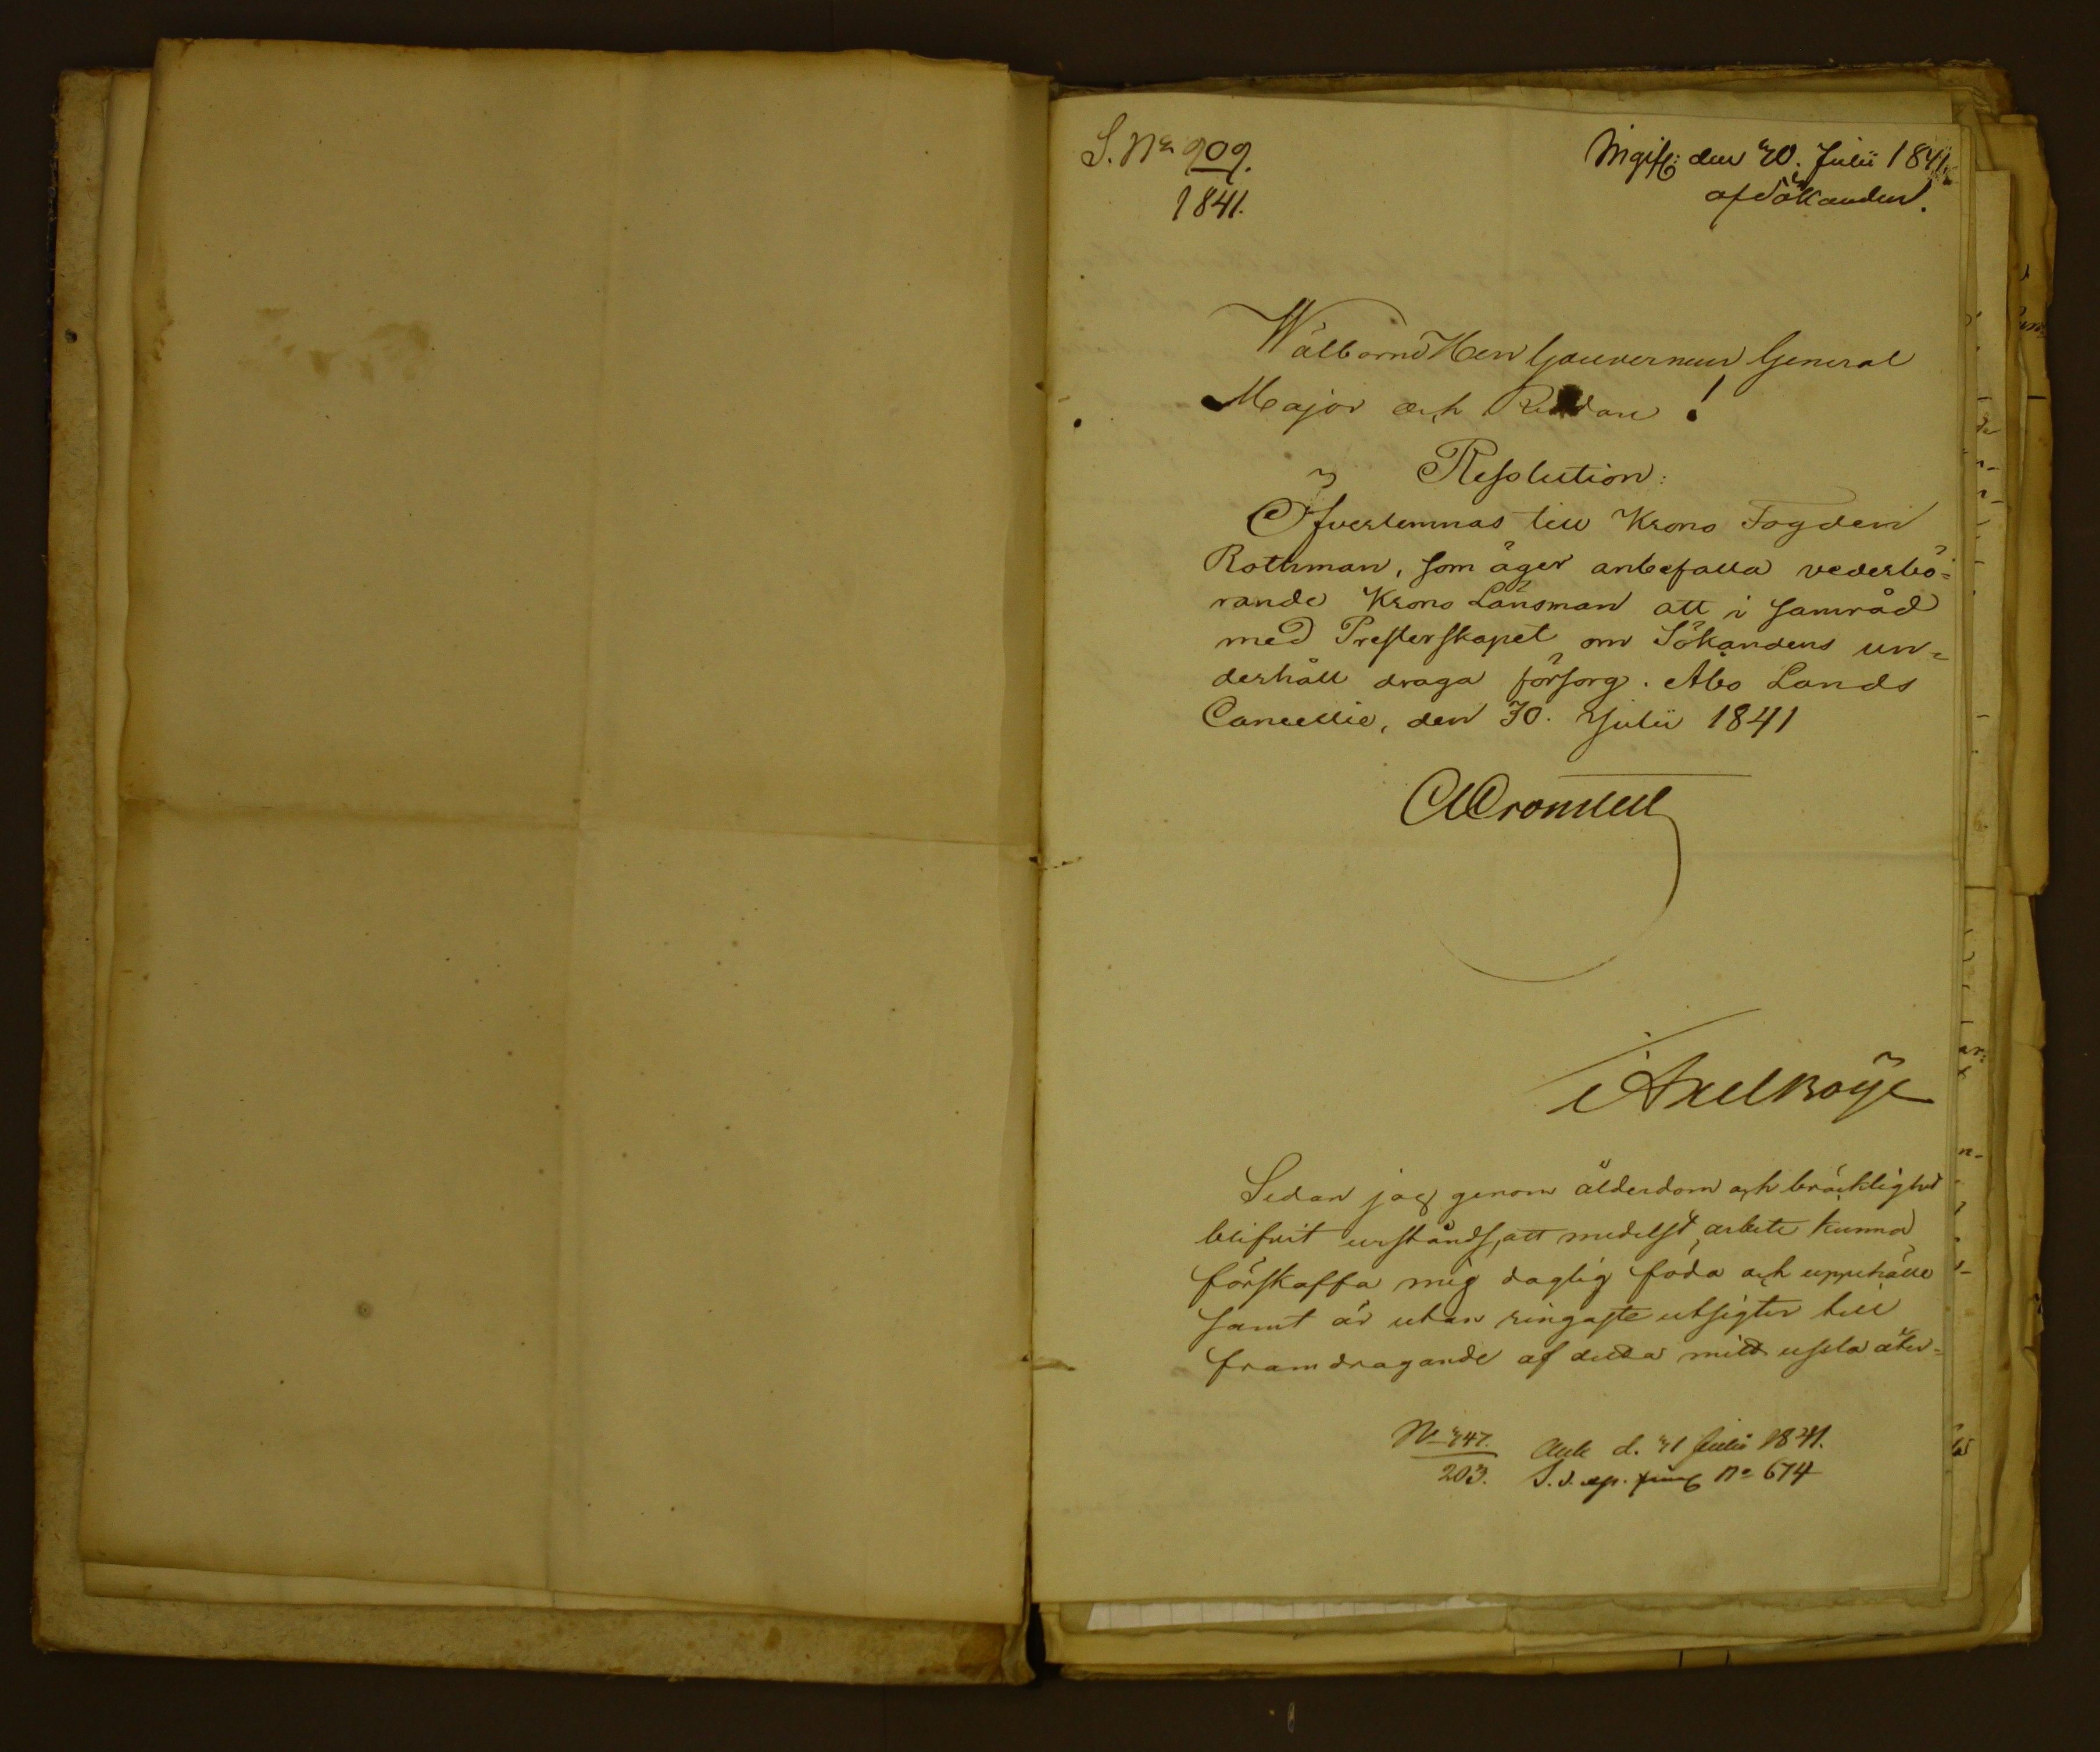 S. No 909.
1841.
Ingifv: den 30. Julii 1841.
af Sökanden.
Wälborne Herr Gouverneur General
Major och Riddare!
Resolution:
Öfverlemnas till Krono Fogden
Rothman, som äger anbefalla vederbö=
rande Krono Länsman att i samråd
med Presterskapet om Sökandens un=
derhåll draga försorg. Åbo Lands
Cancellie, den 30. Julii 1841
Axel Boije
Sedan jag genom ålderdom och bräcklighet
blifvit urståndsatt medelst arbete kunna
förskaffa mig daglig föda och uppehälle
samt är utan ringaste utsigter till
framdragande af detta mitt usla åter=
No 347. Ank d. 31 Julii 1841.
203. No 674